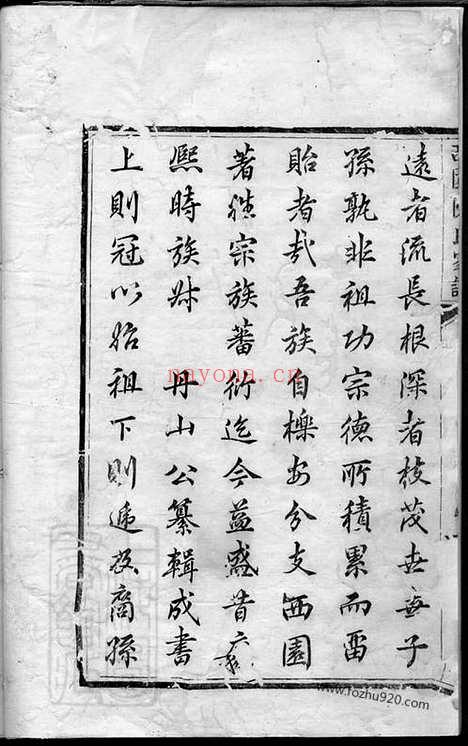 遠者流長根深者枝茂世無子
孫孰非祖功宗德所積累而留
貽者哉吾族自櫟安分支西園
著雄宗族蕃衍迄今益盛昔
熙時族 丹山公纂輯成書
上則冠以始祖下則遞及裔孫
nayona.cn
www.fozhu920.com